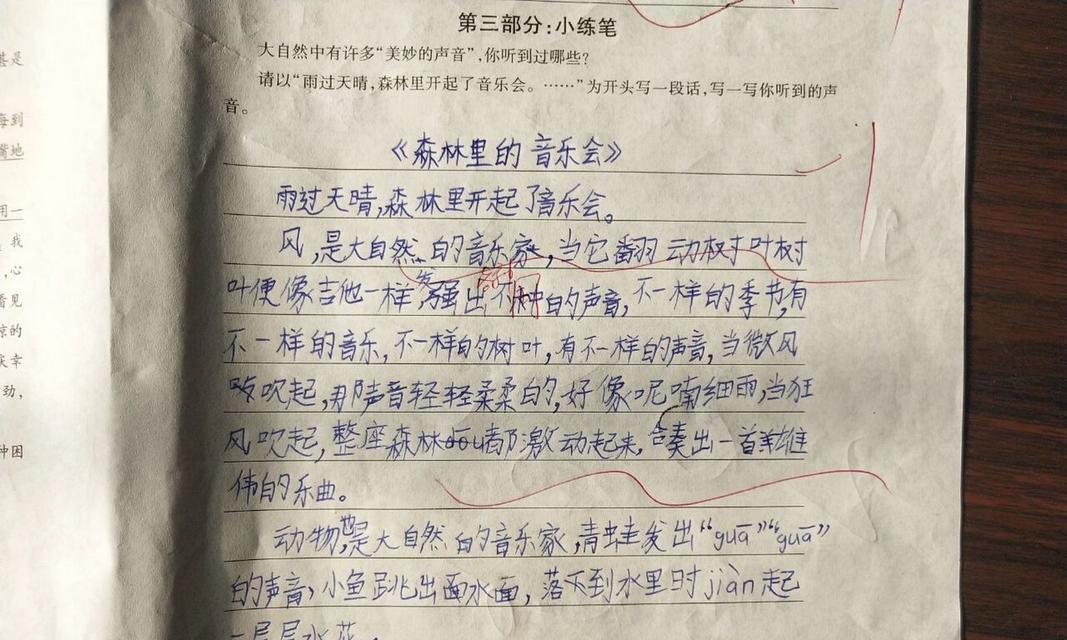 甚是
每到
嘴地
用一
我
,心
看见
凉的
庆幸
劲,
种困
第三部分:小练笔
大自然中有许多“美妙的声音”,你听到过哪些?
请以“雨过天晴,森林里开起了音乐会。……”为开头写一段话,写一写你听到的声
音。
《森林里的音乐会》
雨过天晴,森林里开起了音乐会。
风,是大自然的音乐家,当它翻动树叶树
叶便像吉他一样发出不同种的声音,不一样的季节,有
不一样的音乐,不一样的树叶,有不一样的声音,当微风
吹起,那声音轻轻柔柔的,好像呢喃细雨,当狂
风吹起,整座森林都激动起来,合奏出一首雄
伟的乐曲。
动物,也是大自然的音乐家,青蛙发出“guā”“guā”
的声音,小鱼跳出水面,落下到水里时jiàn起
一层层水花,